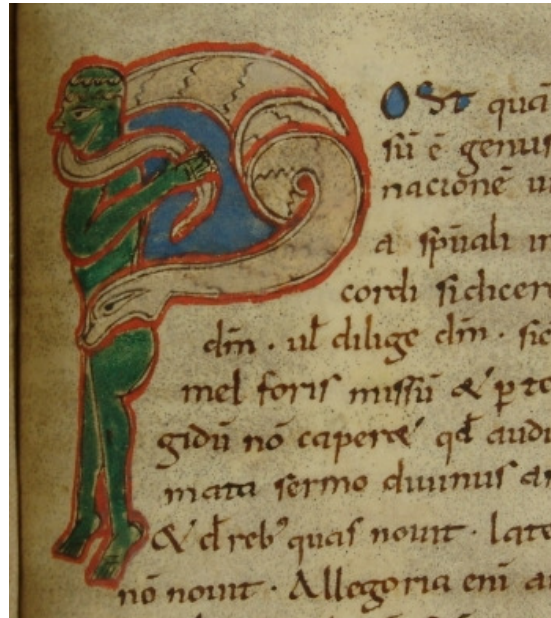 POSt quā
sū ē genus
nacionē
a spūali in
cordi sicilicet
dm̄ · ul̄ dilige dm̄ · sic
mel foris missū & p̱
gidū nō capere qd̄ audi
mata sermo diuinus
& d̄ reb⁹ quas nouit ·
nō nouit · Allegoria enī